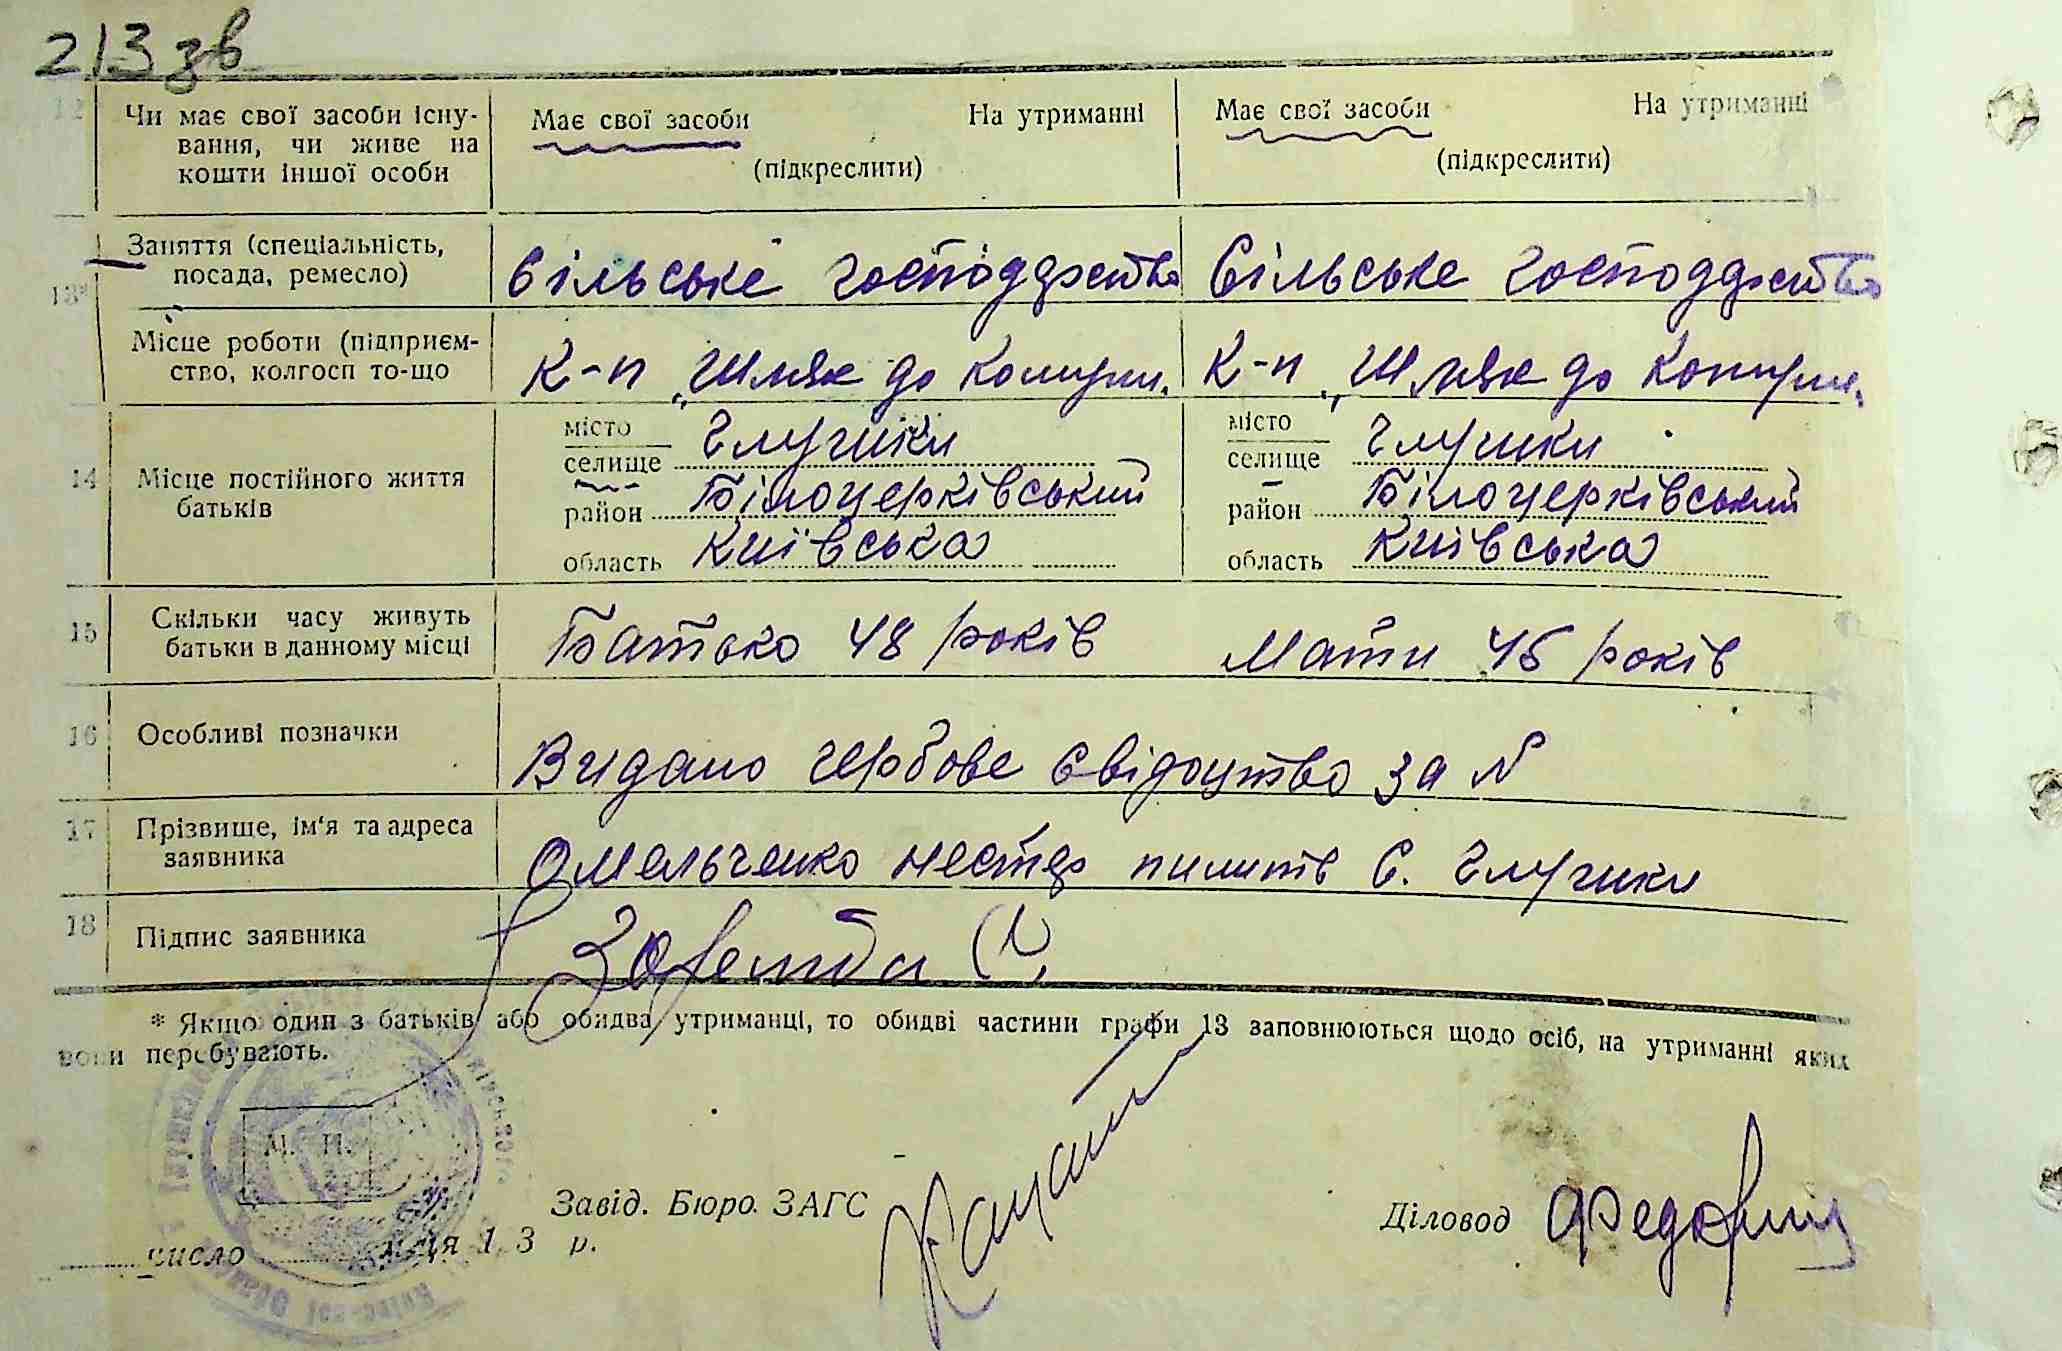 213 зв
12 Чи має свої засоби існу- Має свої засоби На утриманні Має свої засоби На утриманні
вання, чи живе на
кошти іншої особи (підкреслити) (підкреслити)
Заняття (спеціальність,
посада, ремесло) Сільське господарство Сільське господарство
13*
Місце роботи (підприєм-
ство, колгосп то-що К-п "Шлях до Комуни. К-п "Шлях до Комуни.
місто Глушки місто Глушки
селище селище
14 Місце постійного життя
батьків район Білоцерківський район Білоцерківський
область Київська область Київська
15 Скільки часу живуть
батьки в данному місці Батько 48 років Мати 45 років
16 Особливі позначки
Видано гербове свідоцтво за №
17 Прізвище, ім'я та адреса
заявника Омельченко Нестер с. Глушки
18 Підпис заявника
* Якщо один з батьків або обидва утриманці, то обидві частини графи 13 заповнюються щодо осіб, на утриманні яких
вони перебувають.
М. П.
Завід. Бюро ЗАГС
Діловод
число м-ця 193 р.